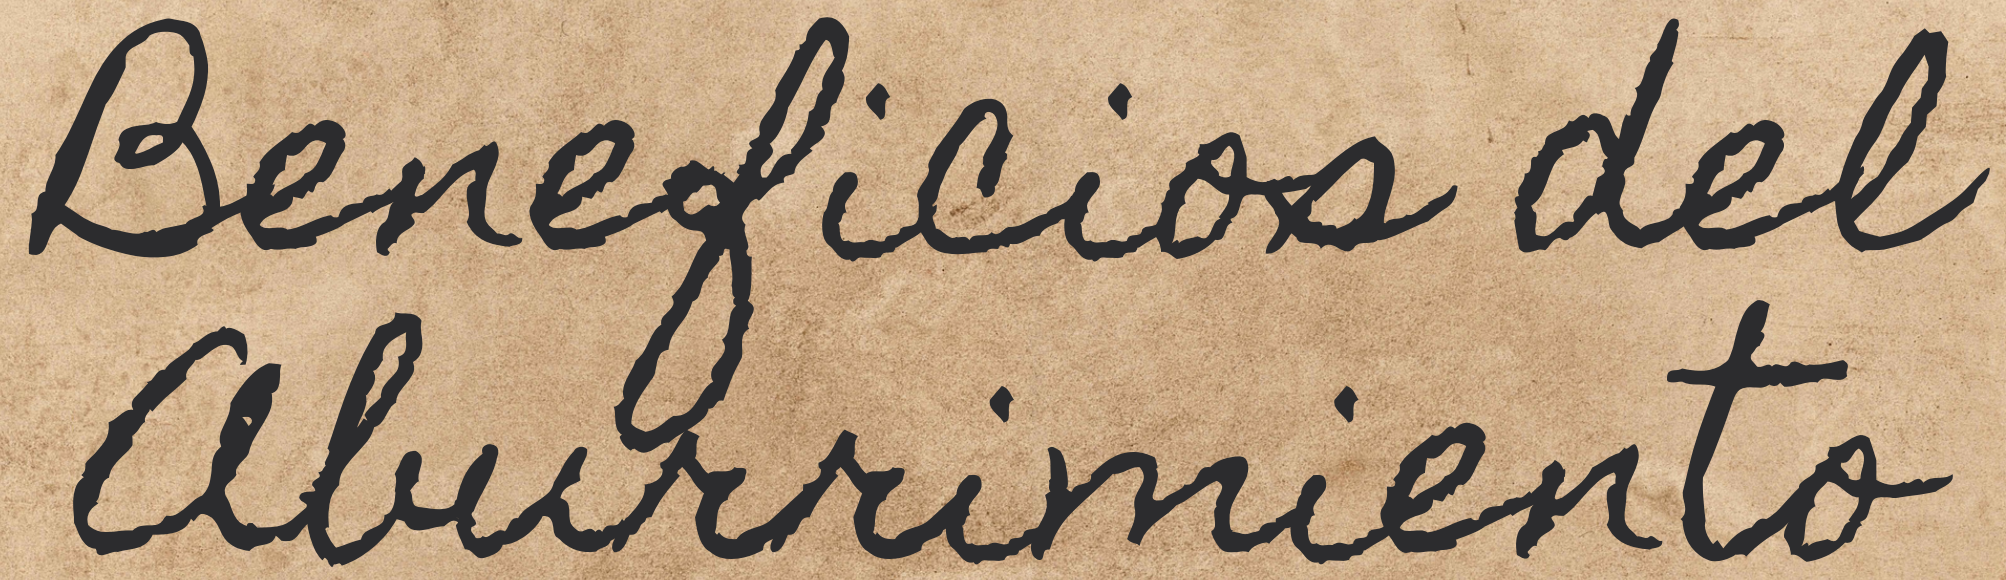 Beneficios del
Aburrimiento